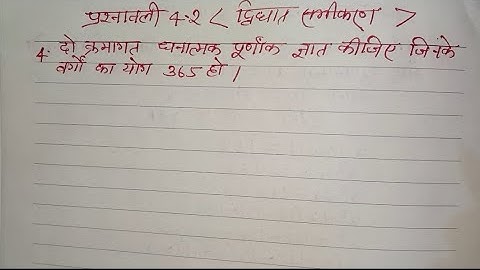 प्रश्नावली 4.2 < द्विघात समीकरण >
4. दो क्रमागत धनात्मक पूर्णांक ज्ञात कीजिए जिनके
वर्गों का योग 365 हो।